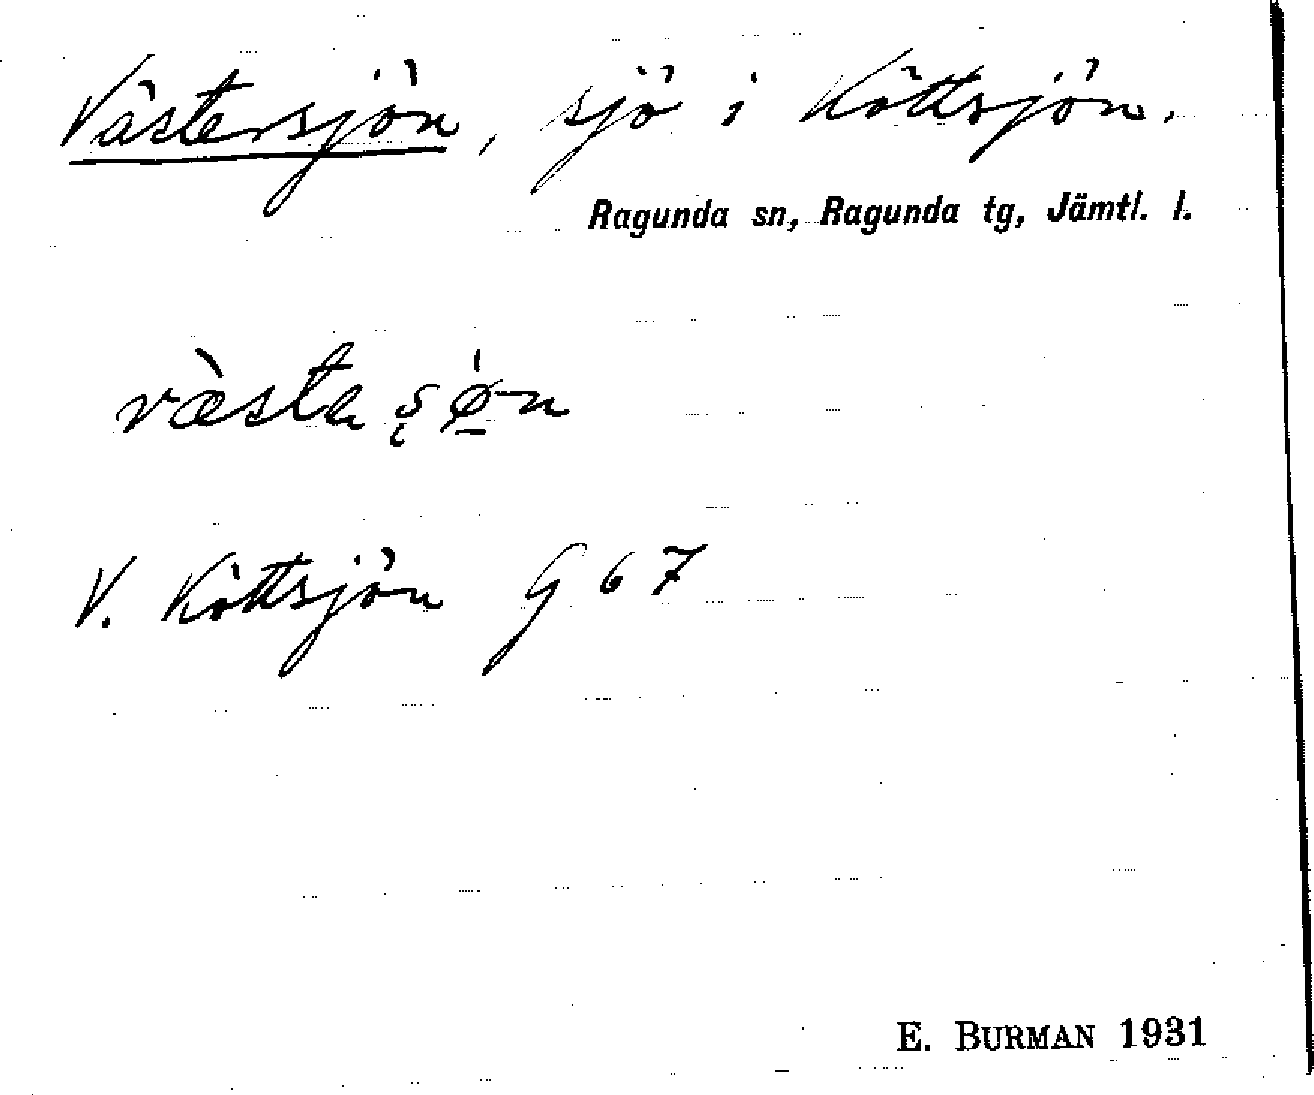 Västersjön, sjö i Köttsjön.
Ragunda sn, Ragunda tg, Jämtl. l.
væ̀sta ş ǿ̱n
V. Köttsjön G 67
E. BURMAN 1931